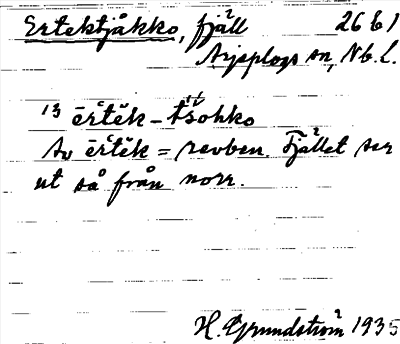 Ertektjåkko, fjäll 26 E 1
Arjeplogs sn, Nb. l.
13 ērtĕk - tšohko
Av ērtĕk = revben. Fjället ser
ut så från norr.
H. Grundström 1935